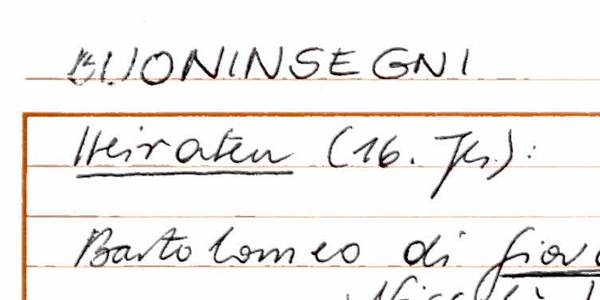 BUONINSEGNI
Heiraten (16. Jh.):
Bartolomeo di